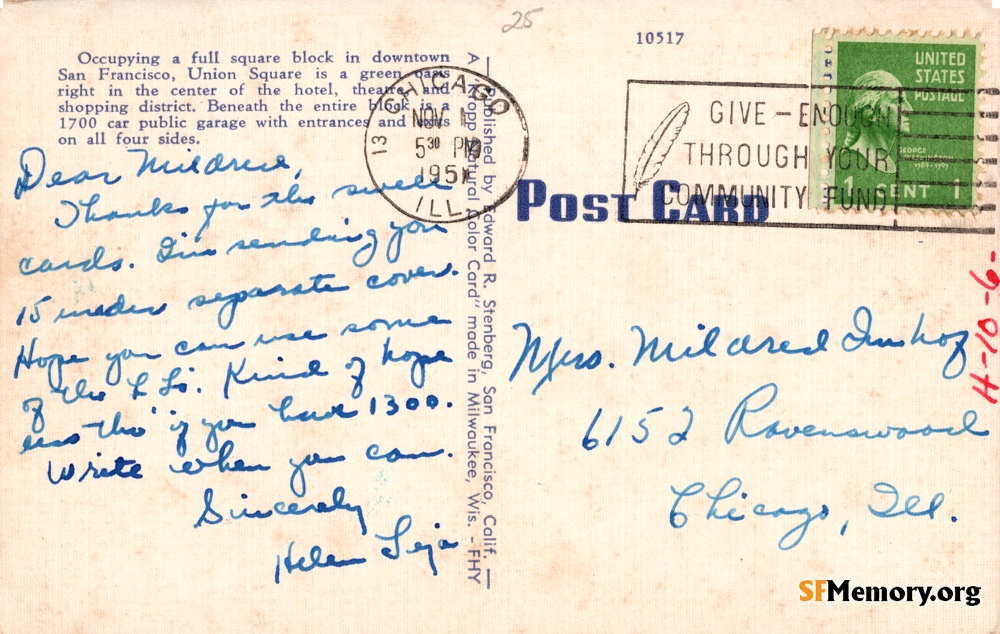 25
10517
Occupying a full square block in downtown
San Francisco, Union Square is a green oasis
right in the center of the hotel, theatre and
shopping district. Beneath the entire block is a
1700 car public garage with entrances and exits
on all four sides.
Dear Mildred,
Thanks for the swell
cards. I'm sending you
15 under separate cover.
Hope you can use some
of the L Ls'. Kind of hope
less tho' if you have 1300.
Write when you can.
Sincerely
Helen
— Published by Edward R. Stenberg, San Francisco, Calif. —
A "Kropp Natural Color Card" made in Milwaukee, Wis. - FHY
CHICAGO
13
NOV
5 30 PM
195
ILL.
GIVE - ENOUGH
THROUGH YOUR
COMMUNITY FUND
UNITED
STATES
POSTAGE
GEORGE
WASHINGTON
1789-1797
1 CENT 1
POST CARD
Mrs. Mildred Imhof
6152 Ravenswood
Chicago, Ill.
H-10-6-
SFMemory.org